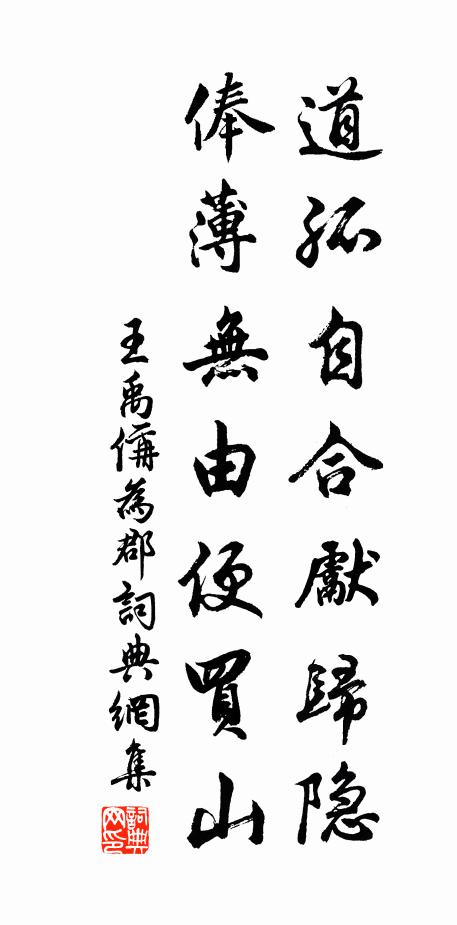 道孤自合獻歸隐
俸薄無由便買山
王禹偁為郡詞典網集
詞典網印